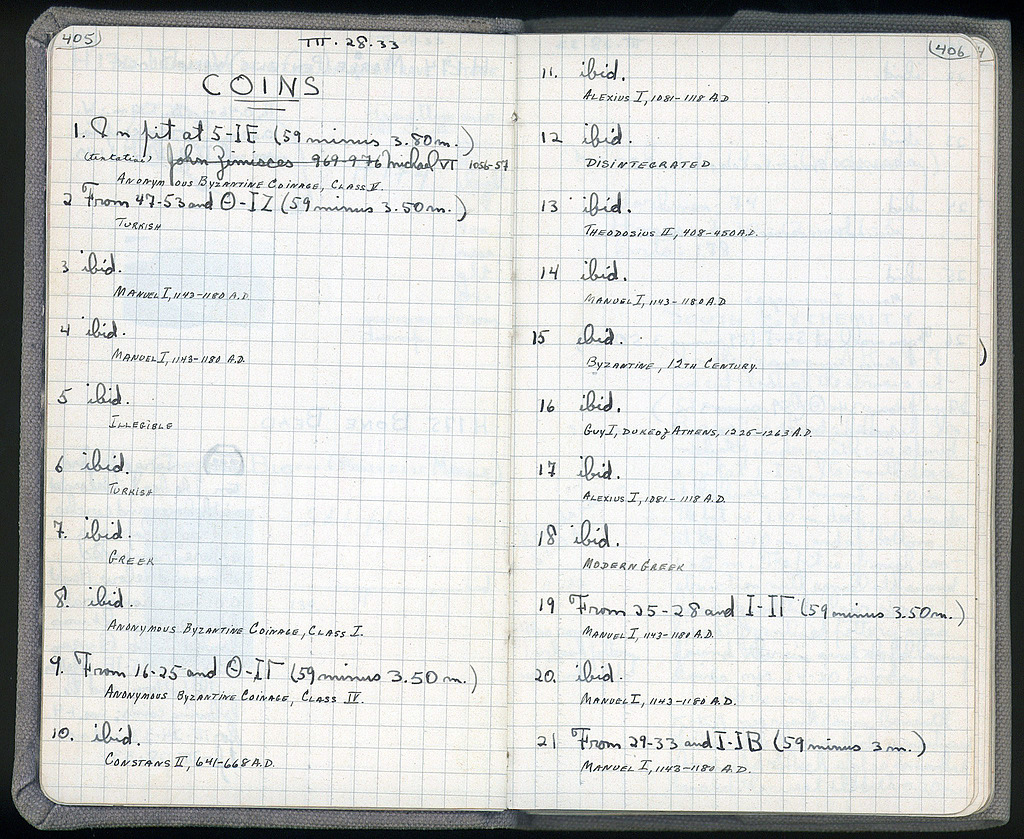 405
III.28.33
COINS
1. In pit at 5-IE (59 minus 3.80m.)
(tentative) John Zimisces 969-976 Michael VI 1056-57
ANONYMOUS BYZANTINE COINAGE, CLASS V.
2 From 47-53 and Θ-IZ (59 minus 3.50m.)
TURKISH
3 ibid.
MANUEL I, 1143-1180 A.D.
4 ibid.
MANUEL I, 1143-1180 A.D.
5 ibid.
ILLEGIBLE
6 ibid.
TURKISH
7. ibid.
GREEK
8. ibid.
ANONYMOUS BYZANTINE COINAGE, CLASS I.
9. From 16-25 and Θ-IΓ (59 minus 3.50 m.)
ANONYMOUS BYZANTINE COINAGE, CLASS IV.
10. ibid.
CONSTANS II, 641-668 A.D.
406
11. ibid.
ALEXIUS I, 1081-1118 A.D
12 ibid.
DISINTEGRATED
13 ibid.
THEODOSIUS II, 408-450 A.D.
14 ibid.
MANUEL I, 1143-1180 A.D
15 ibid.
BYZANTINE, 12TH CENTURY.
16 ibid.
GUY I, DUKE of ATHENS, 1225-1263 A.D.
17 ibid.
ALEXIUS I, 1081-1118 A.D.
18 ibid.
MODERN GREEK
19 From 25-28 and I-IΓ (59 minus 3.50m.)
MANUEL I, 1143-1180 A.D.
20. ibid.
MANUEL I, 1143-1180 A.D.
21 From 29-33 and I-IB (59 minus 3m.)
MANUEL I, 1143-1180 A.D.